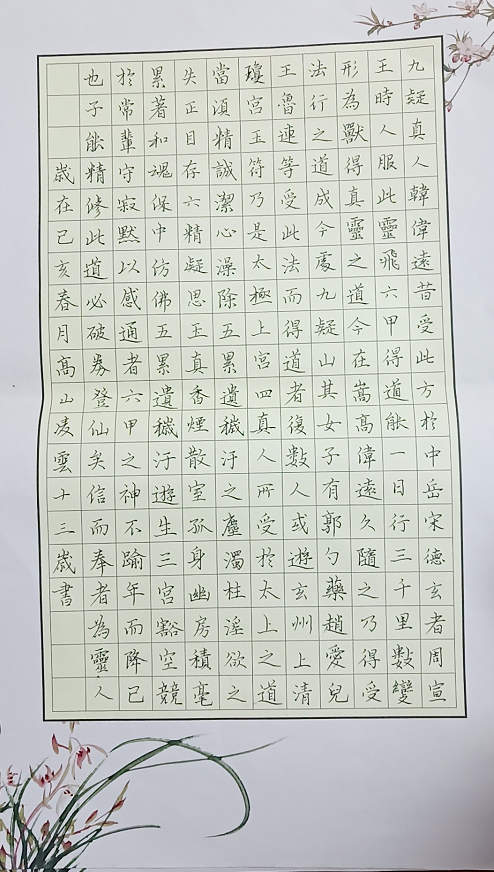 九疑真人韓偉遠昔受此方於中岳宋德玄者周宣
王時人服此靈飛六甲得道能一日行三千里數變
形為獸得真靈之道今在嵩高偉遠久隨之乃得受
法行之道成今處九疑山其女子有郭勺藥趙愛兒
王魯連等受此法而得道者復數人或遊玄州上清
瓊宮玉符乃是太極上宮四真人所受於太上之道
當須精誠潔心澡除五累遺穢汙之塵濁杜淫欲之
失正目存六精凝思玉真香煙散室孤身幽房積毫
累著和魂保中仿佛五累遺穢汙遊生三宮豁空競
於常輩守寂默以感通者六甲之神不踰年而降已
也子能精修此道必破券登仙矣信而奉者為靈人
歲在己亥春月高山凌雲十三歲書